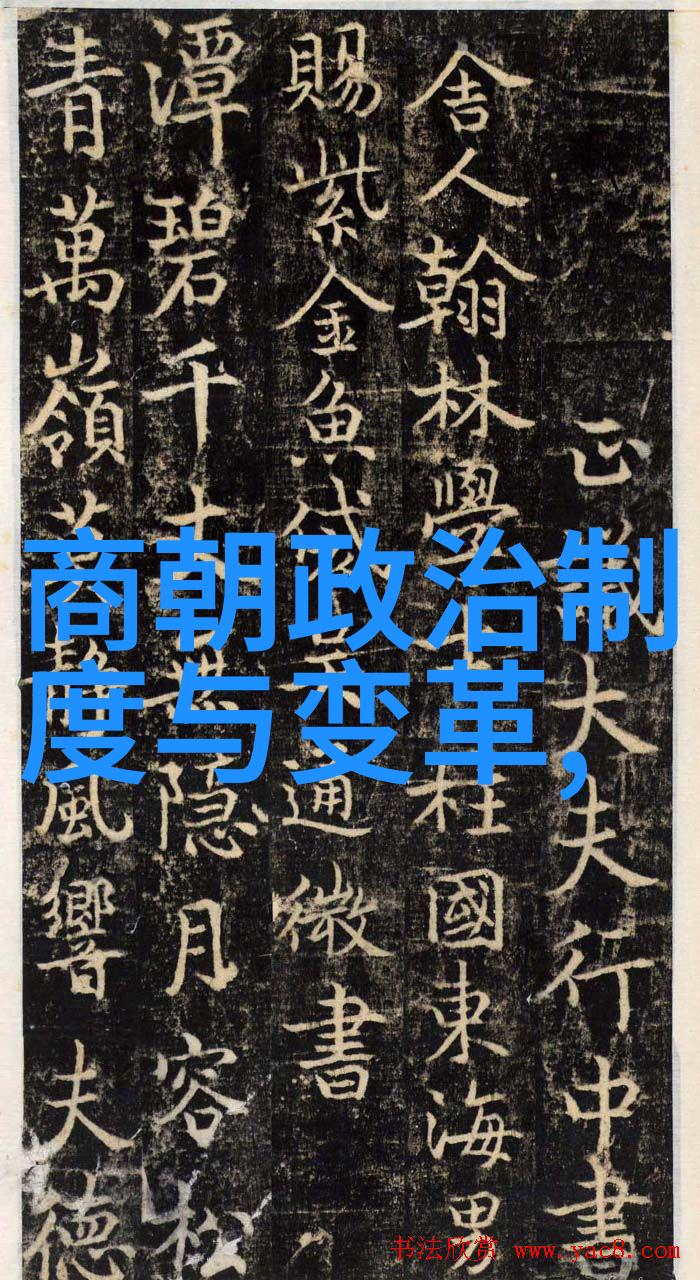 正議大夫行中書
舍人翰林學柱國東海男
賜紫金魚袋通微書
潭碧千隱月容松
青萬嶺風響夫德
商朝政治制
度与变革,
书法欣赏 www.yac8.com